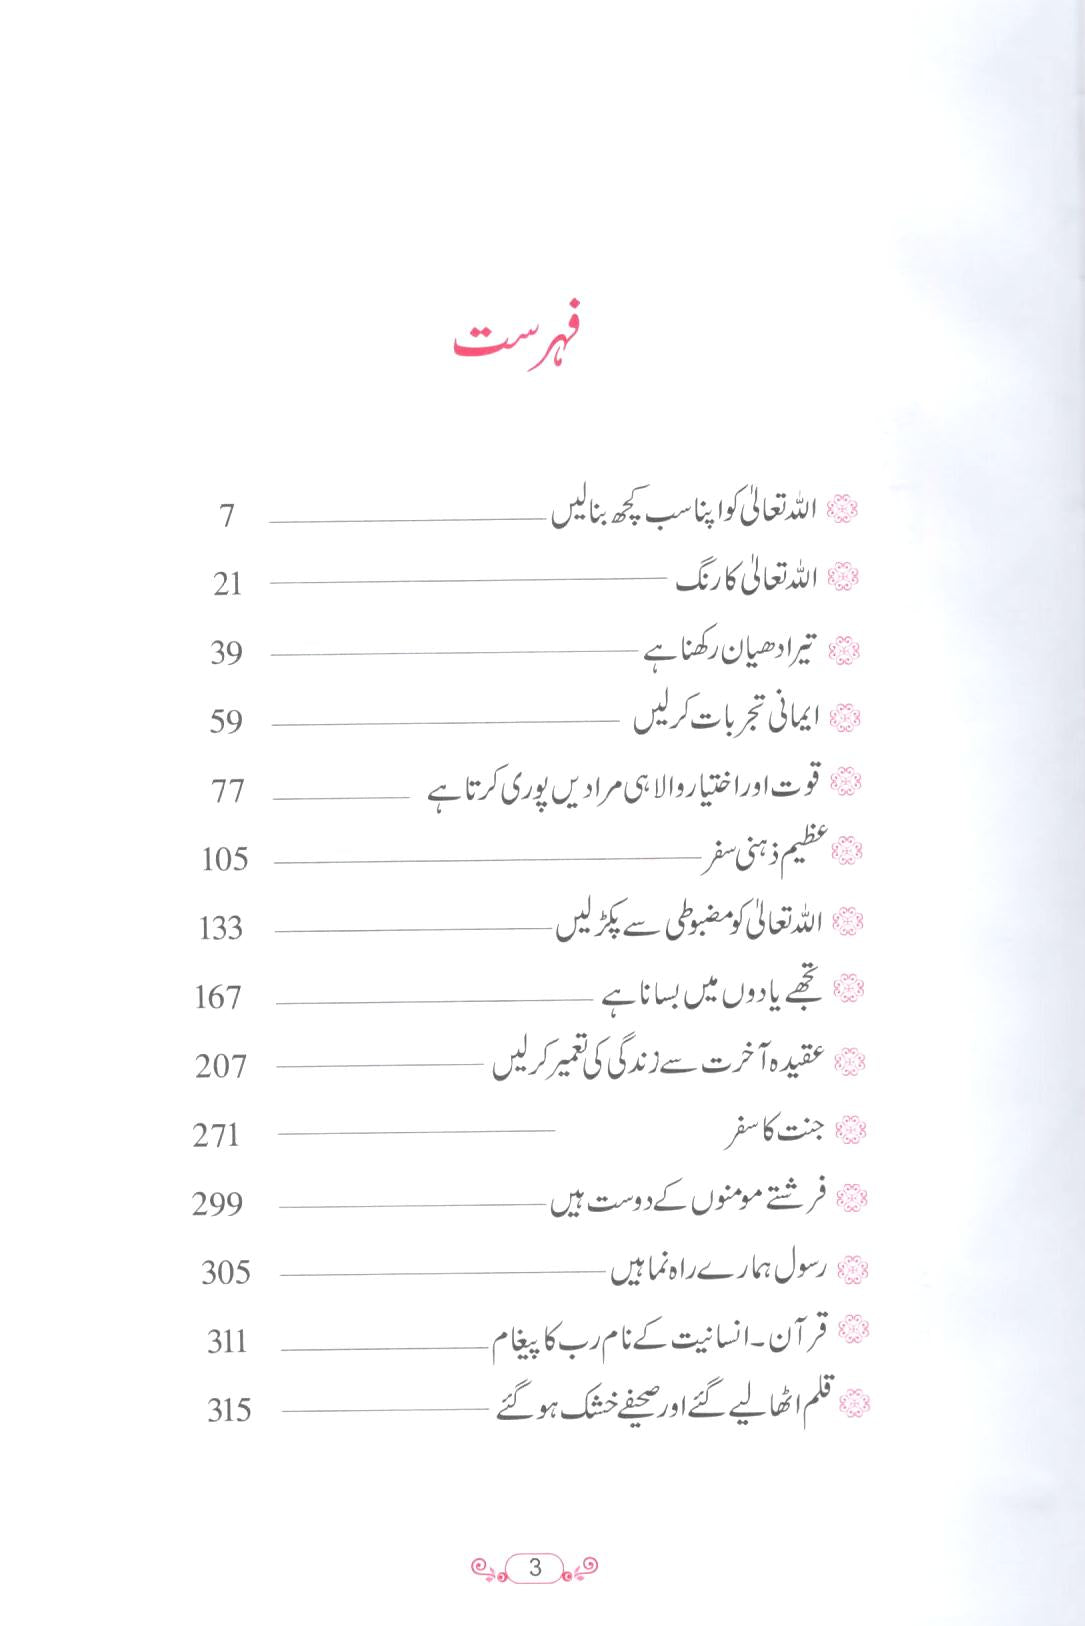 فہرست
اللہ تعالیٰ کو اپنا سب کچھ بنالیں 7
اللہ تعالیٰ کا رنگ 21
تیرا دھیان رکھنا ہے 39
ایمانی تجربات کرلیں 59
قوت اور اختیار والا ہی مرادیں پوری کرتا ہے 77
عظیم ذہنی سفر 105
اللہ تعالیٰ کو مضبوطی سے پکڑلیں 133
تجھے یادوں میں بسانا ہے 167
عقیدہ آخرت سے زندگی کی تعمیر کرلیں 207
جنت کا سفر 271
فرشتے مومنوں کے دوست ہیں 299
رسول ہمارے راہ نما ہیں 305
قرآن۔ انسانیت کے نام رب کا پیغام 311
قلم اٹھالیے گئے اور صحیفے خشک ہوگئے 315
3